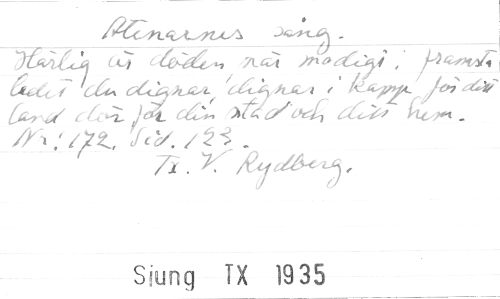 Atenarnes sång.
Härlig är döden när modigt i främsta
ledet du dignar, dignar i kamp för ditt
land dör för din stad och ditt hem.
Nr: 172. Sid. 123.
Tx. V. Rydberg.
Sjung TX 1935